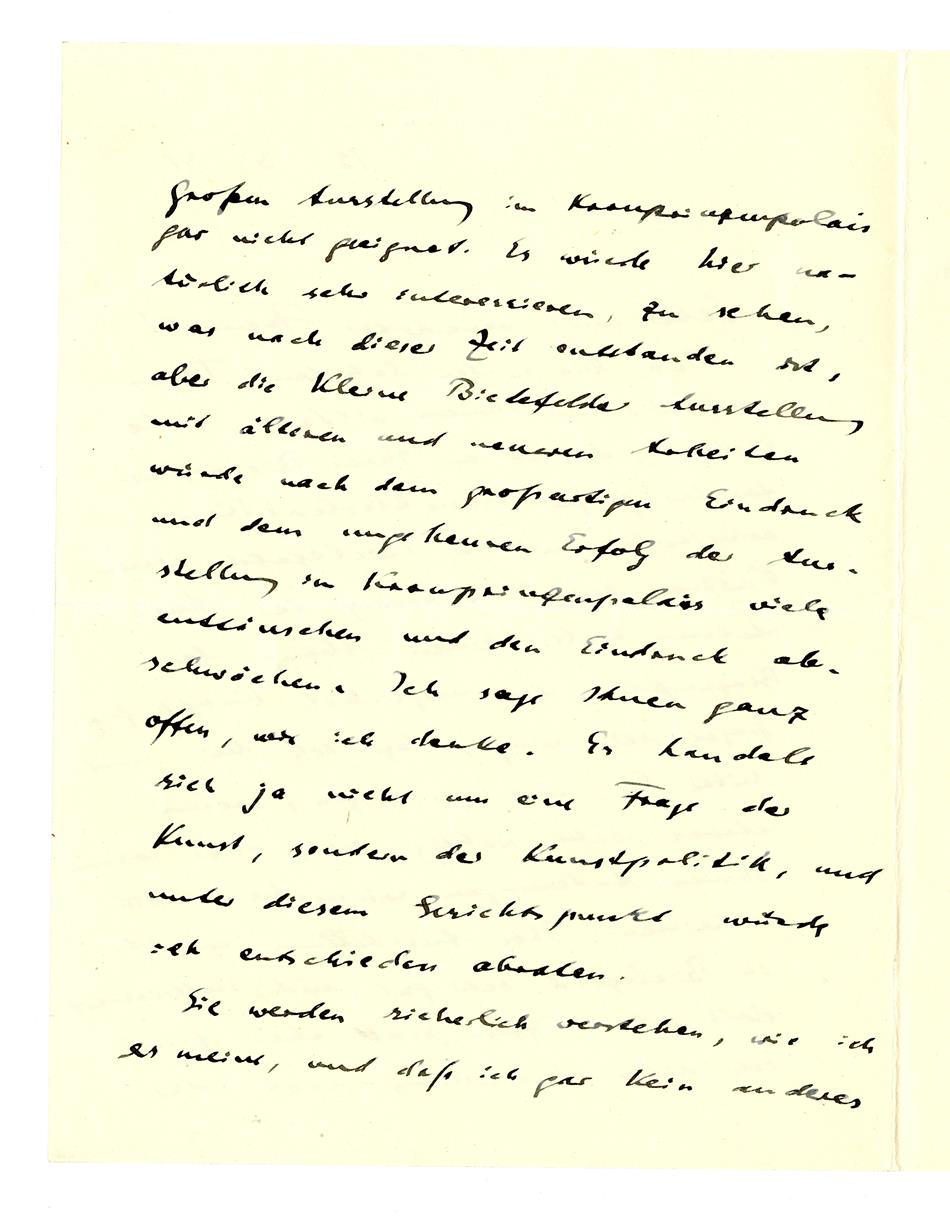 großen Ausstellung im Kronprinzenpalais
gar nicht geeignet. Es würde hier na-
türlich sehr interessieren, zu sehen,
was nach dieser Zeit entstanden ist,
aber die kleine Bielefelder Ausstellung
mit älteren und neueren Arbeiten
würde nach dem großartigen Eindruck
und dem ungeheuren Erfolg der Aus-
stellung im Kronprinzenpalais viele
enttäuschen und den Eindruck ab-
schwächen. Ich sage Ihnen ganz
offen, wie ich denke. Es handelt
sich ja nicht um eine Frage der
Kunst, sondern der Kunstpolitik, und
unter diesem Gesichtspunkt würde
ich entschieden abraten.
Sie werden sicherlich verstehen, wie ich
es meine, und daß ich gar kein anderes